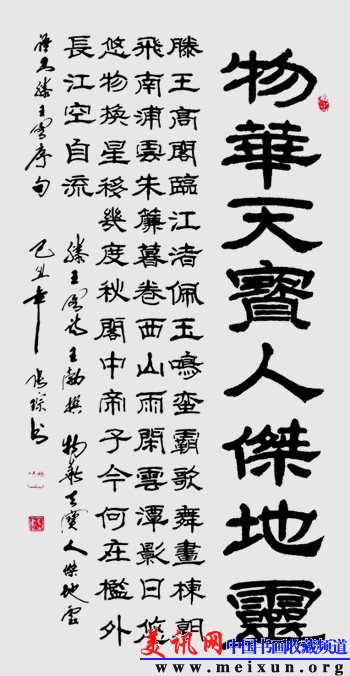 物華天寶人傑地靈
滕王高閣臨江渚佩玉鳴蛮霸歌舞畫棟朝
飛南浦雲朱簾暮卷西山雨閑雲潭影日悠
悠物換星移幾度秋閣中帝子今何在檻外
長江空自流
滕王阁詩王勃撰 物華天寶人傑地靈
滕王阁序句
己丑年 书
美讯网 中国书画收藏频道
www.meixun.org